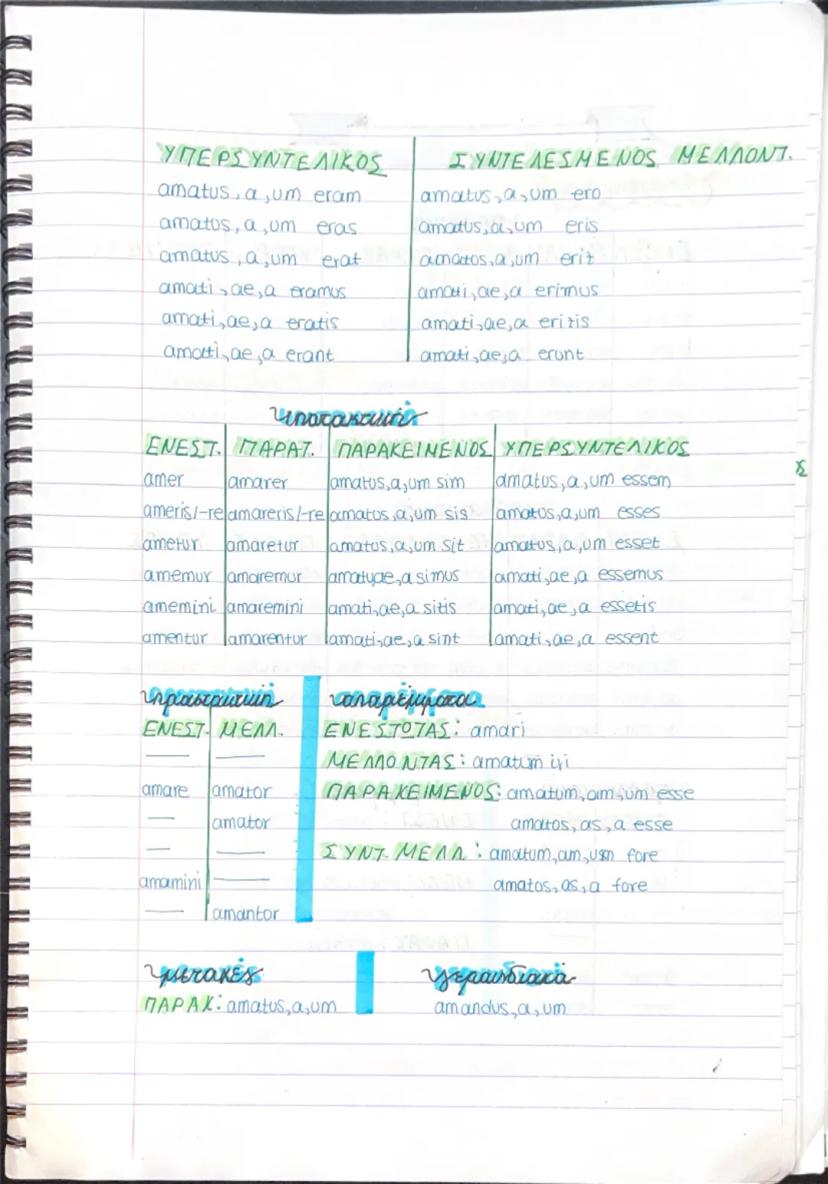 ΥΠΕΡΣΥΝΤΕΛΙΚΟΣ ΣΥΝΤΕΛΕΣΜΕΝΟΣ ΜΕΛΛΟΝΤ.
amatus, a, um eram amatus, a, um ero
amatus, a, um eras amatus, a, um eris
amatus, a, um erat amatus, a, um erit
amati, ae, a eramus amati, ae, a erimus
amati, ae, a eratis amati, ae, a eritis
amati, ae, a erant amati, ae, a erunt
υποτακτική
ΕΝΕΣΤ. ΠΑΡΑΤ. ΠΑΡΑΚΕΙΜΕΝΟΣ ΥΠΕΡΣΥΝΤΕΛΙΚΟΣ
amer amarer amatus, a, um sim amatus, a, um essem
ameris/-re amareris/-re amatus, a, um sis amatus, a, um esses
ametur amaretur amatus, a, um sit amatus, a, um esset
amemur amaremur ae, a simus amati, ae, a essemus
amemini amaremini amati, ae, a sitis amati, ae, a essetis
amentur amarentur amati, ae, a sint amati, ae, a essent
προστακτική απαρέμφατα
ΕΝΕΣΤ. ΜΕΛΛ. ΕΝΕΣΤΩΤΑΣ: amari
— — ΜΕΛΛΟΝΤΑΣ: amatum iri
amare amator ΠΑΡΑΚΕΙΜΕΝΟΣ: amatum, am, um esse
— amator amatos, as, a esse
— — ΣΥΝΤ. ΜΕΛΛ: amatum, am, um fore
amamini — amatos, as, a fore
— amantor
μετοχές γερουνδιακά
ΠΑΡΑΚ: amatus, a, um amandus, a, um